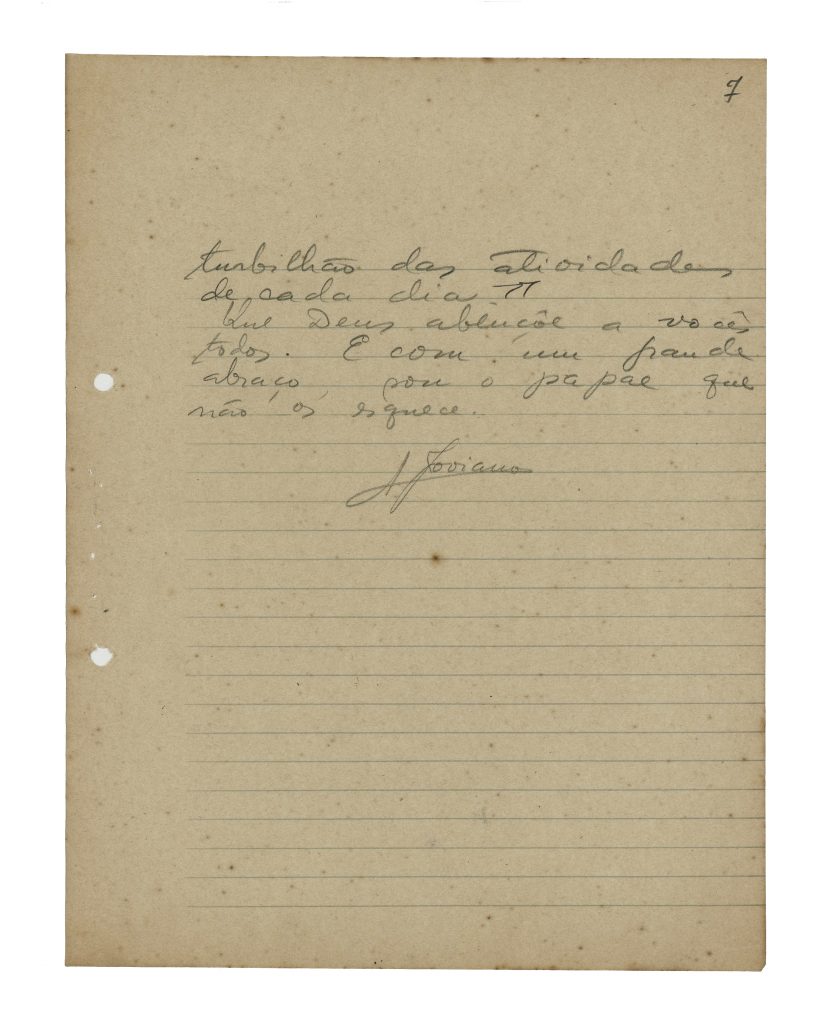 7
turbilhão das atividades
de cada dia.
Que Deus abênçõe a vocês
todos. E com um grande
abraço, sou o papae que
não os esquece.
A Joviano